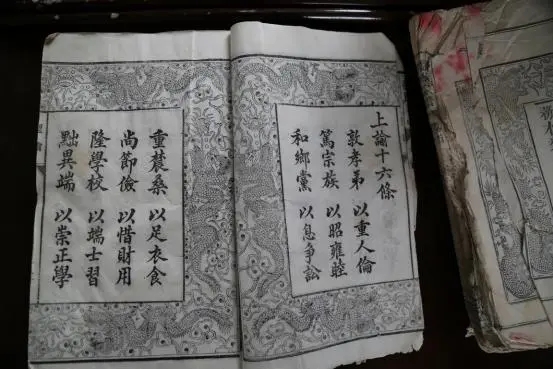 上諭十六條
敦孝弟 以重人倫
篤宗族 以昭雍睦
和鄉黨 以息爭訟
重農桑 以足衣食
尚節儉 以惜財用
隆學校 以端士習
黜異端 以崇正學